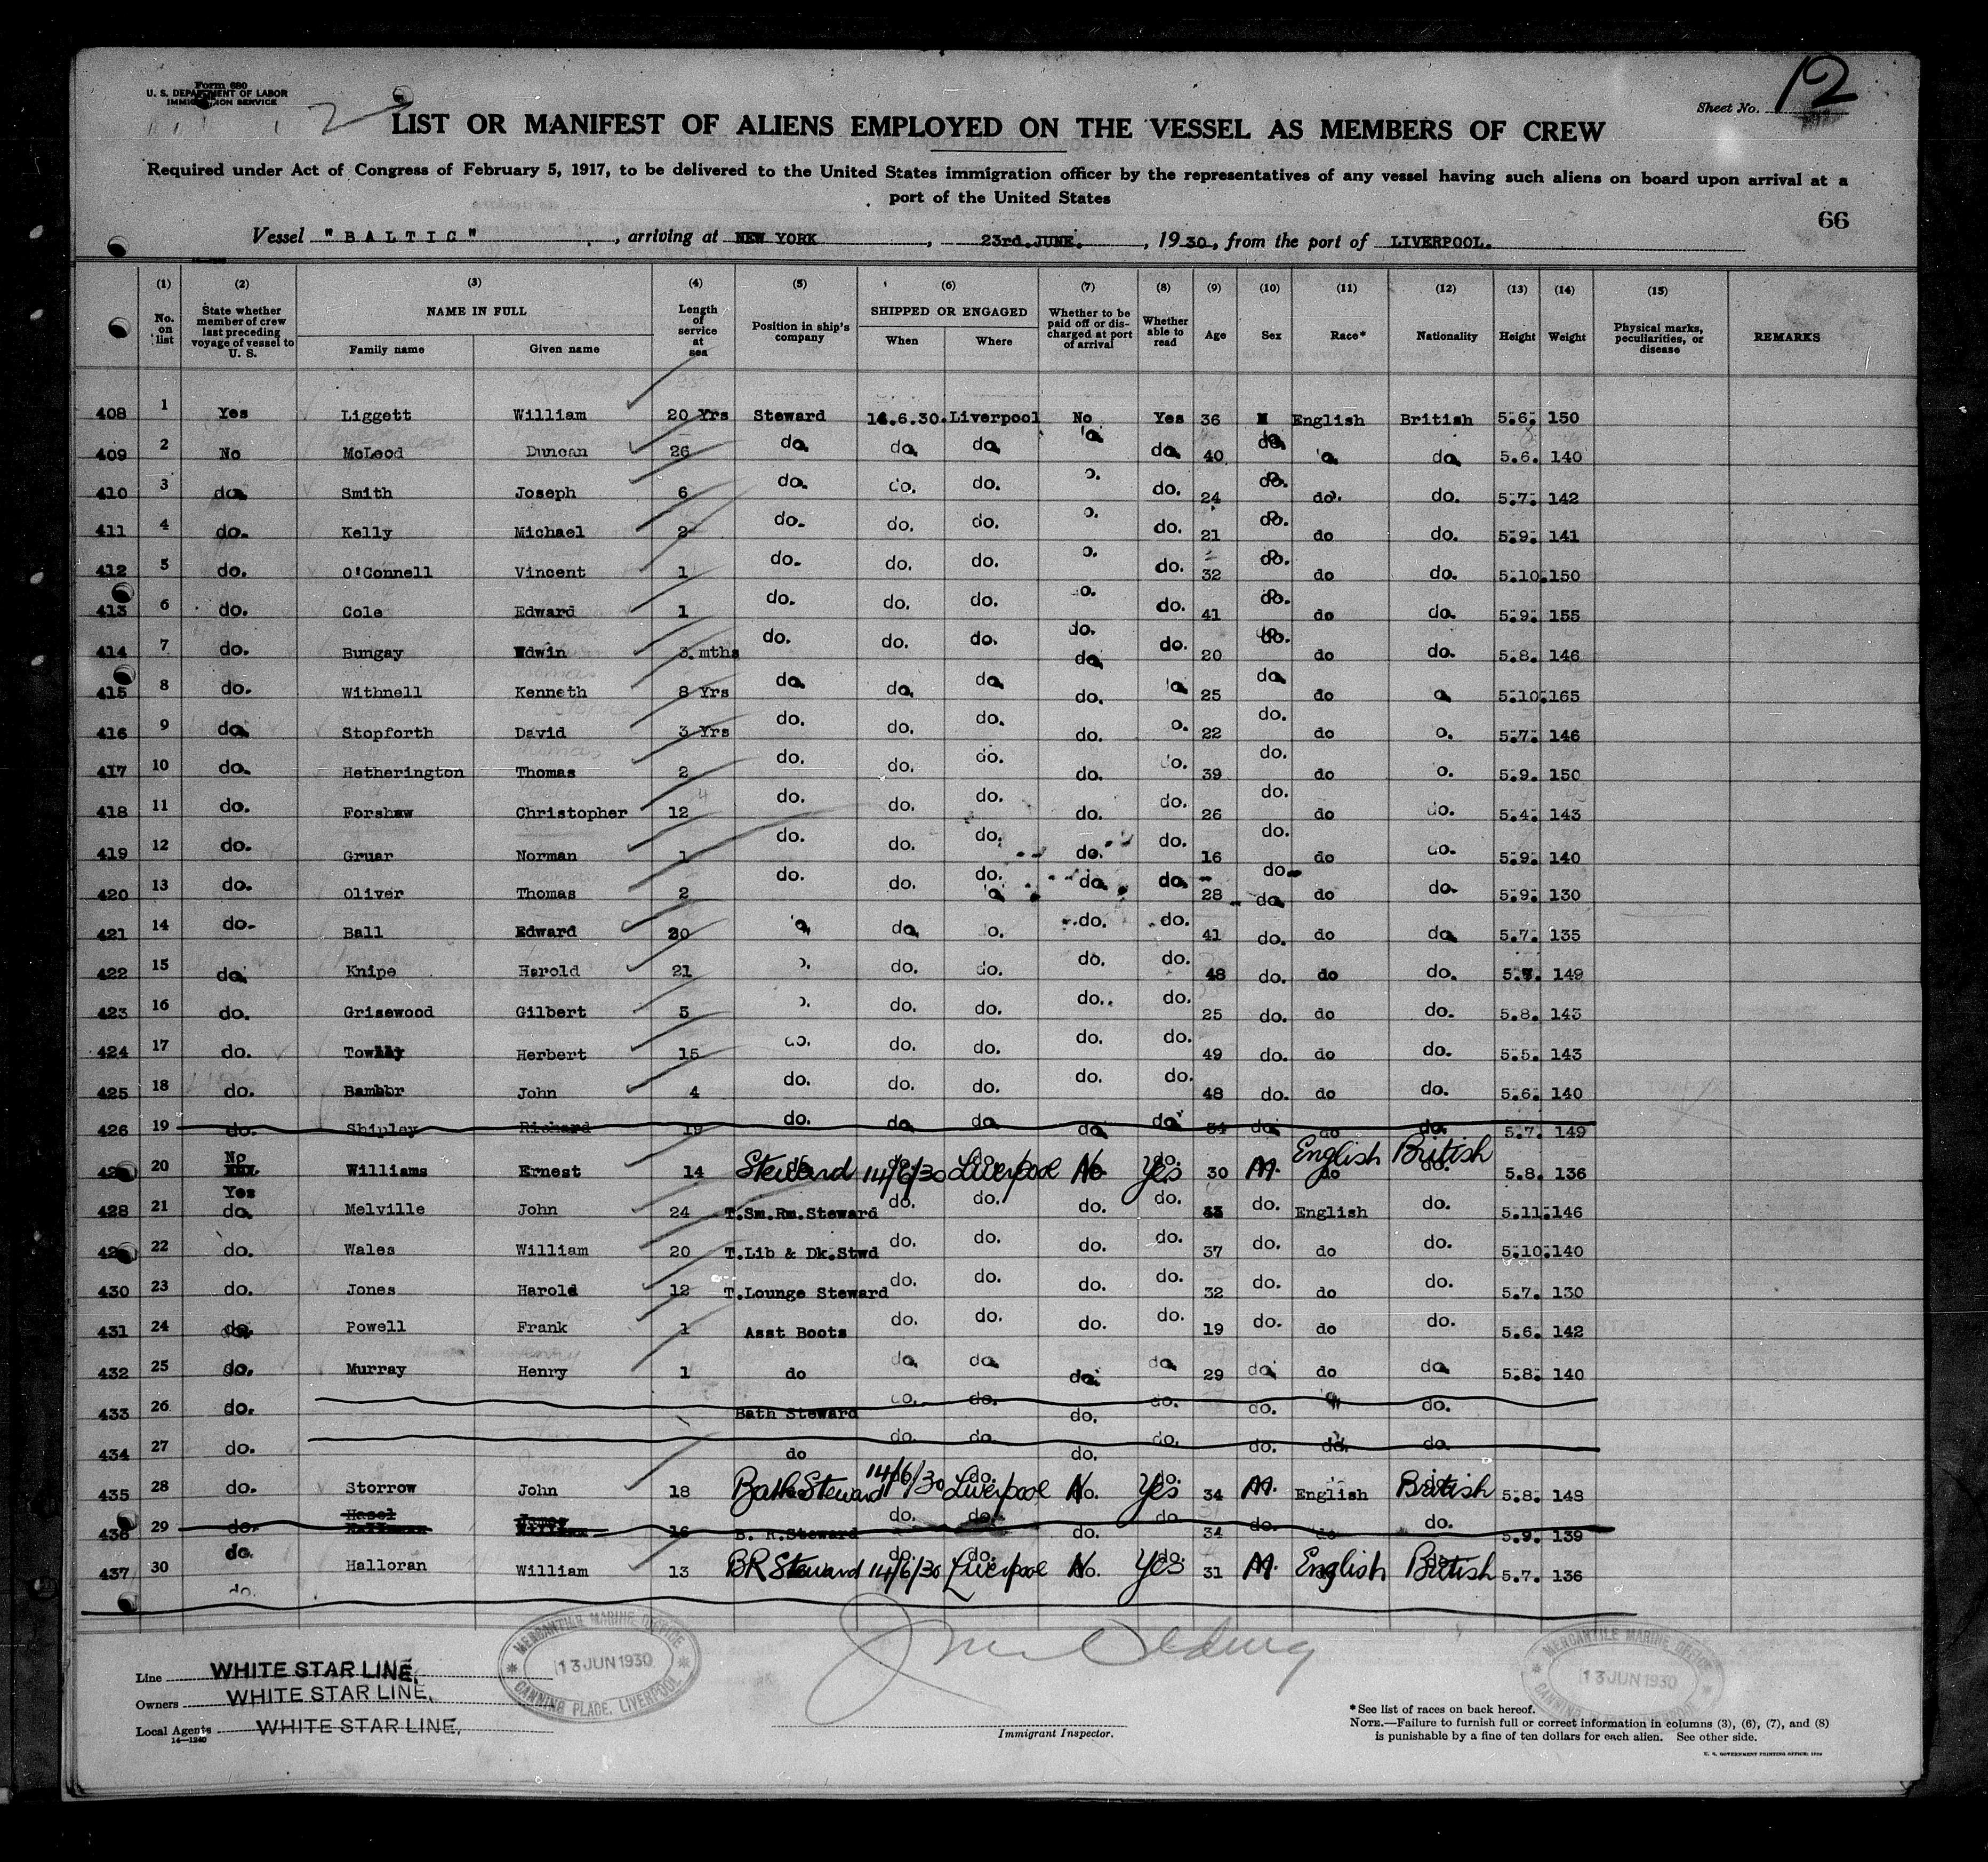 Form 680
U. S. DEPARTMENT OF LABOR
IMMIGRATION SERVICE
Sheet No. 12
LIST OR MANIFEST OF ALIENS EMPLOYED ON THE VESSEL AS MEMBERS OF CREW
Required under Act of Congress of February 5, 1917, to be delivered to the United States immigration officer by the representatives of any vessel having such aliens on board upon arrival at a
port of the United States
66
Vessel "BALTIC", arriving at NEW YORK, 23rd.JUNE., 1930, from the port of LIVERPOOL.
(1) (2) (3) (4) (5) (6) (7) (8) (9) (10) (11) (12) (13) (14) (15)
No. on list State whether member of crew last preceding voyage of vessel to U. S. NAME IN FULL Family name Given name Length of service at sea Position in ship's company SHIPPED OR ENGAGED When Where Whether to be paid off or discharged at port of arrival Whether able to read Age Sex Race* Nationality Height Weight Physical marks, peculiarities, or disease REMARKS
408 1 Yes Liggett William 20 Yrs Steward 14.6.30. Liverpool No Yes 36 M English British 5.6. 150
409 2 No McLeod Duncan 26 do do do do 40 do do 5.6. 140
410 3 do Smith Joseph 6 do. do. do. do. 24 do. do. do. 5.7. 142
411 4 do. Kelly Michael 2 do. do. do. do. 21 do. do do. 5.9. 141
412 5 do. O'Connell Vincent 1 do. do. do. do. 32 do. do do. 5.10. 150
413 6 do. Cole Edward 1 do. do. do. do. 41 do. do do. 5.9. 155
414 7 do. Bungay Edwin 3 mths do. do. do. do. do. 20 do. do do. 5.8. 146
415 8 do. Withnell Kenneth 8 Yrs do do do do. 25 do do 5.10. 165
416 9 do Stopforth David 3 Yrs do. do. do. do. 22 do. do 5.7. 146
417 10 do. Hetherington Thomas 2 do. do. do. do. do. 39 do. do 5.9. 150
418 11 do. Forshaw Christopher 12 do. do. do. do. do. 26 do. do do. 5.4. 143
419 12 do. Gruar Norman 1 do. do. do. do. do. 16 do. do do. 5.9. 140
420 13 do. Oliver Thomas 2 do. do. do. do do 28 do. do do. 5.9. 130
421 14 do. Ball Edward 20 do do. do. 41 do. do do 5.7. 135
422 15 do Knipe Harold 21 do. do. do. do. 48 do. do do. 149
423 16 do. Grisewood Gilbert 5 do. do. do. do. 25 do. do do. 5.8. 143
424 17 do. Herbert 15 do. do. do. do. do. 49 do. do do. 5.5. 143
425 18 do. John 4 do. do. do. do. do. 48 do. do do. 5.6. 140
426 19 do. Shipley Richard 19 do. do do do do 34 do do do. 5.7. 149
20 No Williams Ernest 14 Steward 14/6/30 Liverpool No Yes 30 M. English British 5.8. 136
428 21 Yes do. Melville John 24 T.Sm.Rm.Steward do. do. do. do. do. English do. 5.11. 146
22 do. Wales William 20 T.Lib & Dk.Stwd do. do. do. do. 37 do. do do. 5.10. 140
430 23 do. Jones Harold 12 T.Lounge Steward do. do. do. do. 32 do. do do. 5.7. 130
431 24 do. Powell Frank 1 Asst Boots do. do. do. do. 19 do. do do. 5.6. 142
432 25 do. Murray Henry 1 do do do do do 29 do do do 5.8. 140
433 26 do. Bath Steward do. do. do. do. do. do.
434 27 do. do do. do. do. do. do. do. do.
435 28 do. Storrow John 18 Bath Steward 14/6/30 Liverpool No. Yes 34 M. English British 5.8. 148
436 29 do. Hasel James 16 B. R.Steward do. do. do. do. 34 do. do do. 5.9. 139
437 30 do. Halloran William 13 BR Steward 14/6/30 Liverpool No. Yes 31 M. English British 5.7. 136
do.
Line WHITE STAR LINE,
Owners WHITE STAR LINE,
Local Agents WHITE STAR LINE,
14—1240
MERCANTILE MARINE OFFICE
13 JUN 1930
CANNING PLACE, LIVERPOOL
Immigrant Inspector.
MERCANTILE MARINE OFFICE
13 JUN 1930
*See list of races on back hereof.
NOTE.—Failure to furnish full or correct information in columns (3), (6), (7), and (8)
is punishable by a fine of ten dollars for each alien. See other side.
U. S. GOVERNMENT PRINTING OFFICE